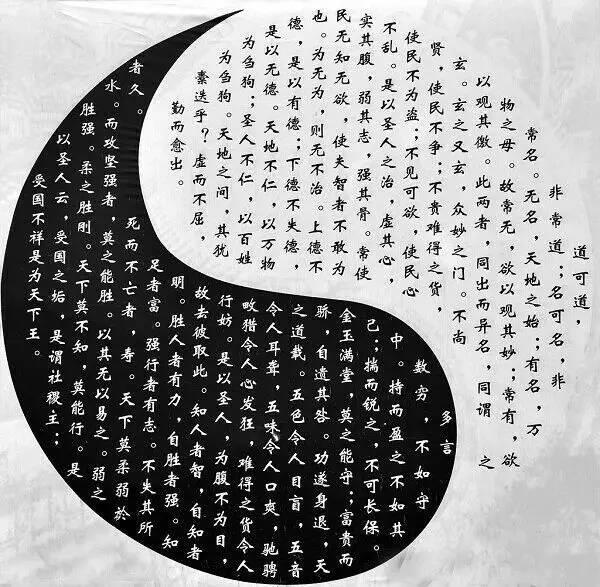 道可道，
非常道；名可名，非
常名。无名，天地之始；有名，万
物之母。故常无，欲以观其妙；常有，欲
以观其徼。此两者，同出而异名，同谓之
玄。玄之又玄，众妙之门。不尚
贤，使民不争；不贵难得之货，
使民不为盗；不见可欲，使民心
不乱。是以圣人之治，虚其心，
实其腹，弱其志，强其骨。常使
民无知无欲，使夫智者不敢为
也。为无为，则无不治。上德不
德，是以有德；下德不失德，
是以无德。天地不仁，以万物
为刍狗；圣人不仁，以百姓
为刍狗。天地之间，其犹
素选乎？虚而不屈，
勤而愈出。
多言
数穷，不如守
中。持而盈之不如其
己；揣而锐之，不可长保。
金玉满堂，莫之能守；富贵而
骄，自遗其咎。功遂身退，天
之道哉。五色令人目盲，五音
令人耳聋，五味令人口爽，驰骋
畋猎令人心发狂，难得之货令人
行妨。是以圣人，为腹不为目，
故去彼取此。知人者智，自知者
明。胜人者有力，自胜者强。知
足者富。强行者有志。不失其所
者久。死而不亡者，寿。天下莫柔弱於
水。而攻坚强者，莫之能胜。以其无以易之。弱之
胜强。柔之胜刚。天下莫不知，莫能行。是
以圣人云，受国之垢，是谓社稷主；
受国不祥是为天下王。